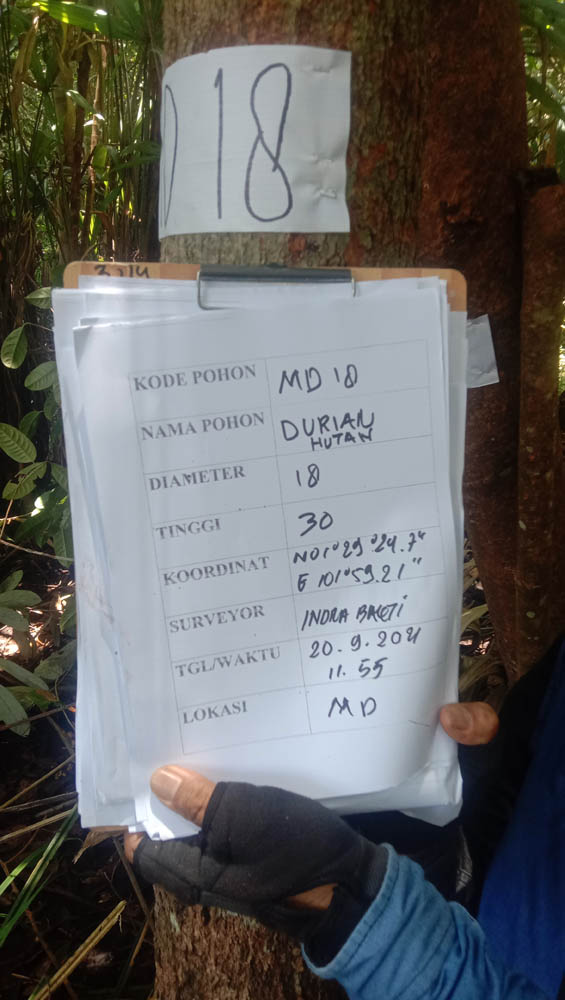 D 18
3014
KODE POHON MD 18
NAMA POHON DURIAN
HUTAN
DIAMETER 18
TINGGI 30
KOORDINAT N01°29°24.7"
E 101°59.21"
SURVEYOR INDRA BAKTI
TGL/WAKTU 20.9.2021
11.55
LOKASI MD